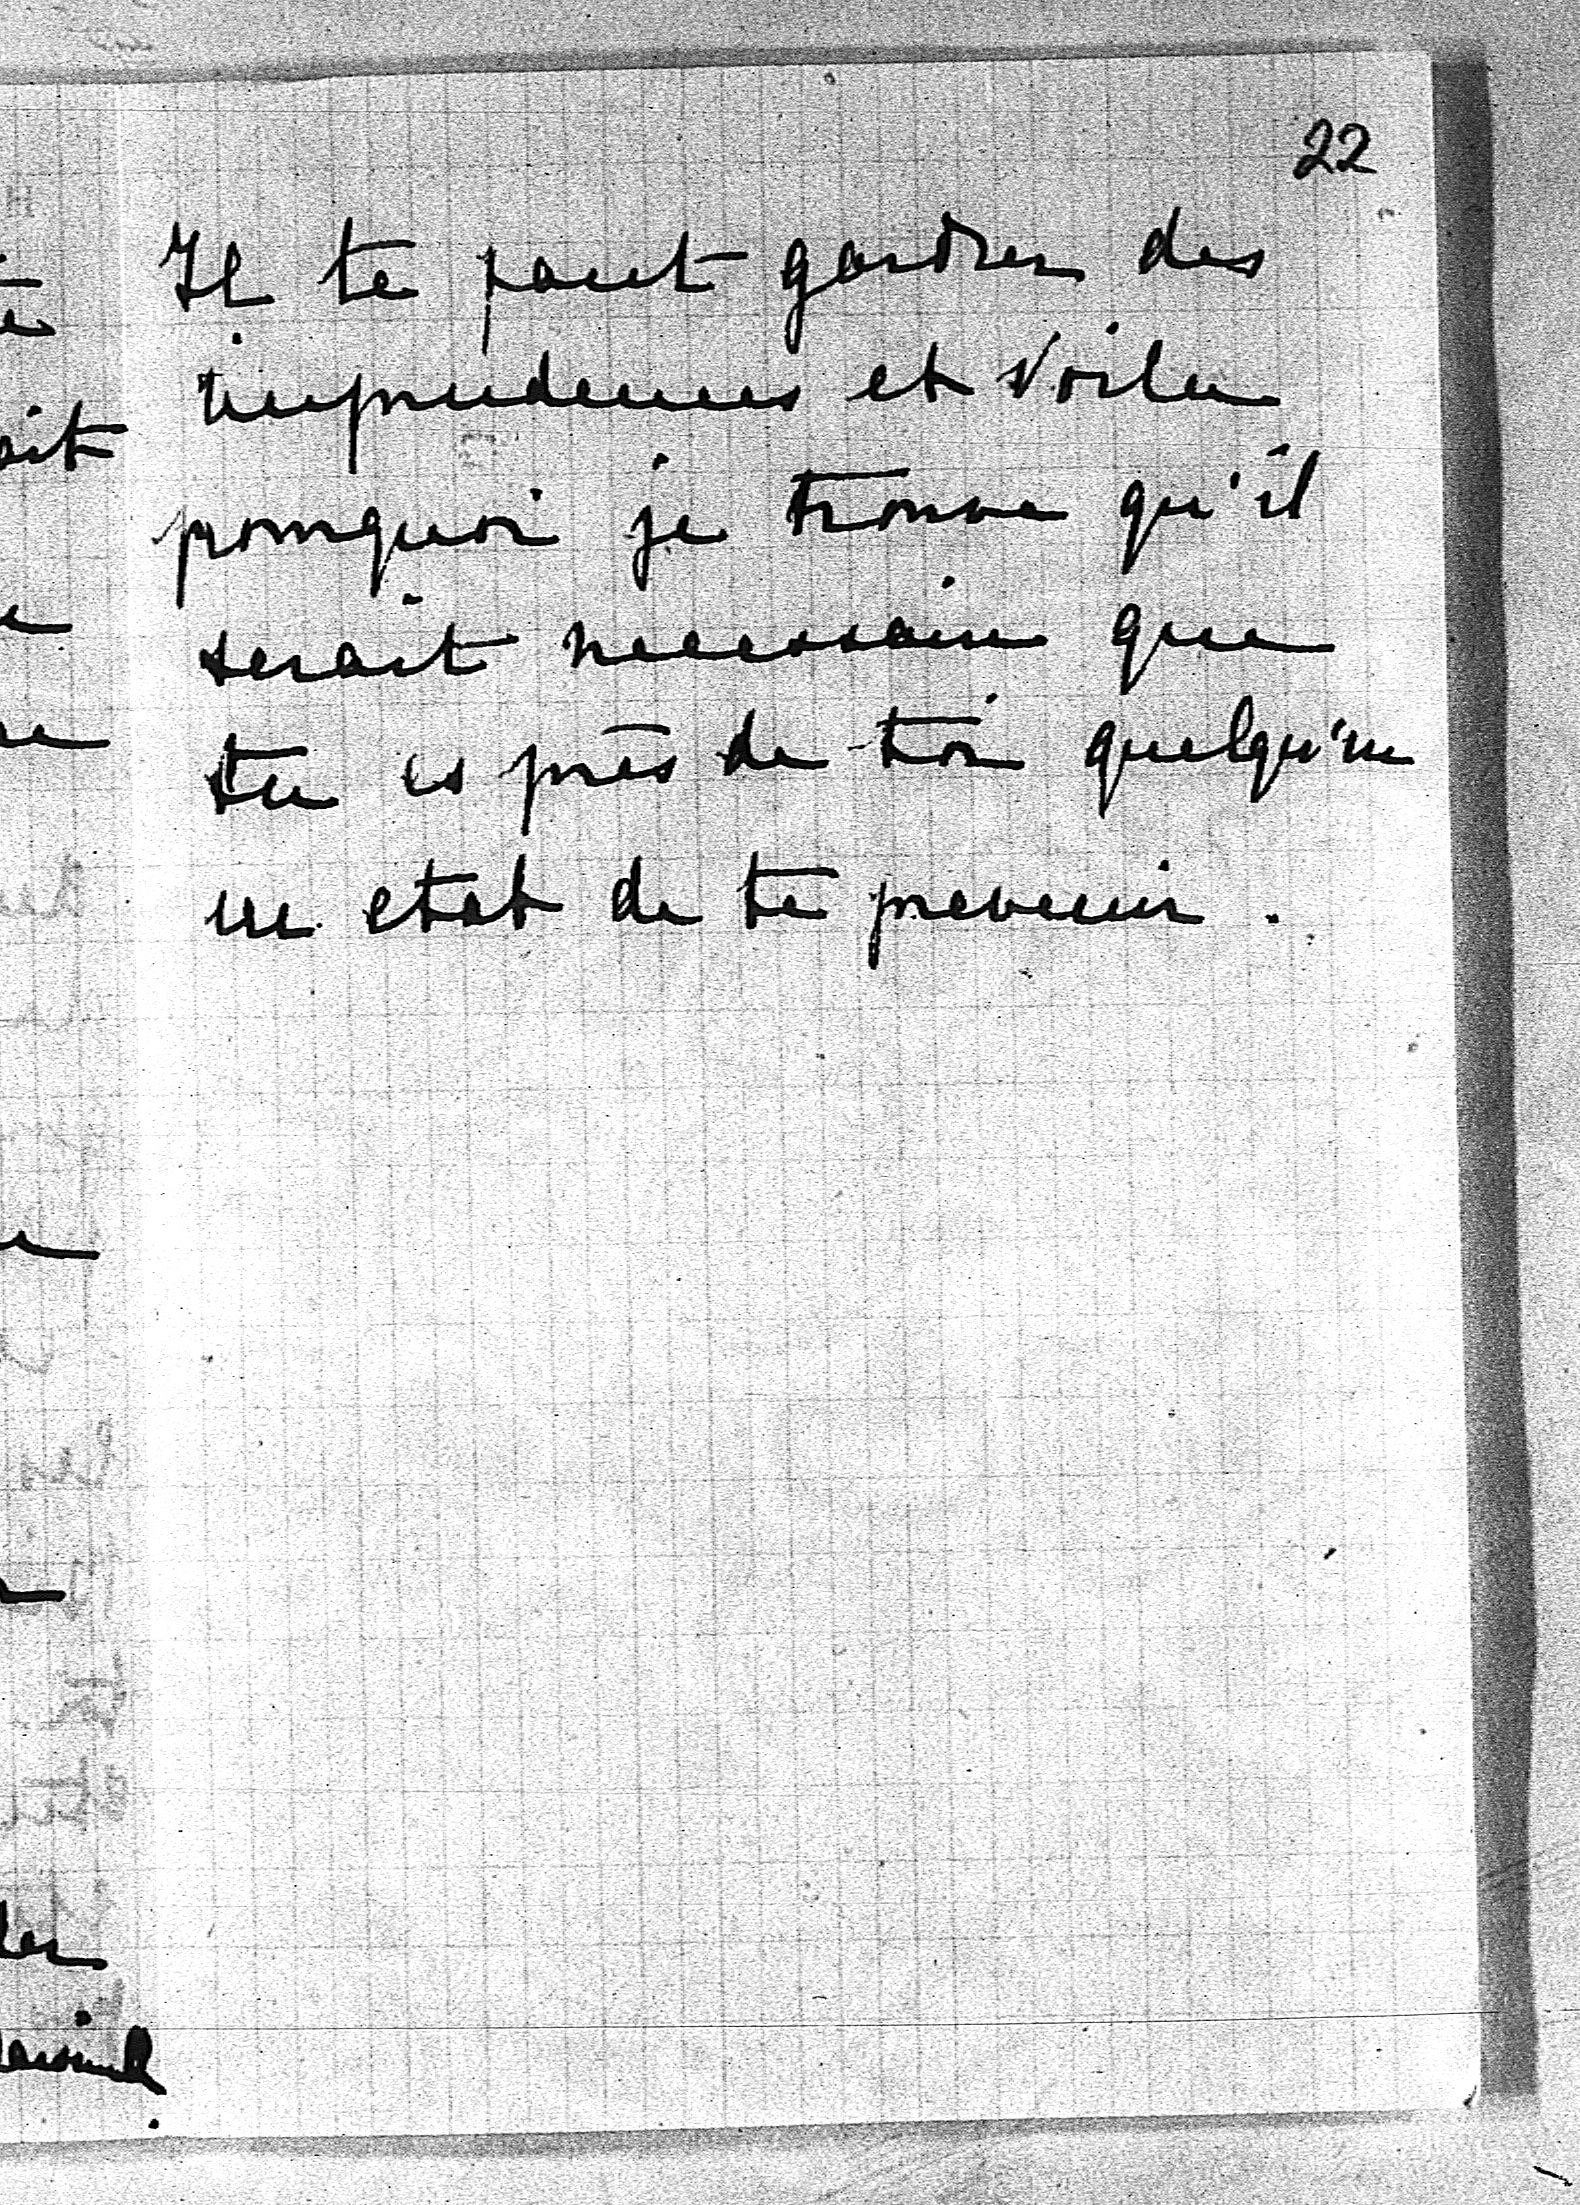 22
Il te faut garder des
imprudences et voila
pourquoi je trouve qu'il
serait necessaire que
tu es près de toi quelqu'un
en etat de te prevenir.